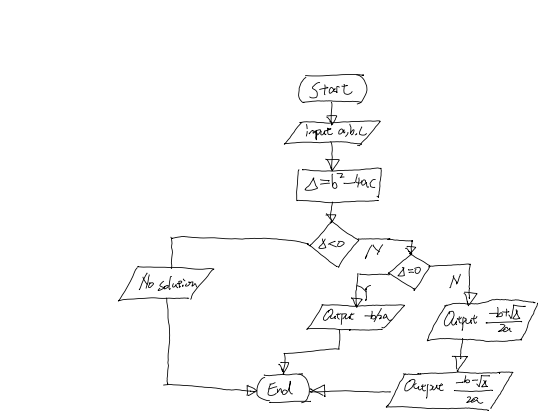 Start
input a,b.c
Δ=b²-4ac
Δ<0
N
Δ=0
N
No solution
Y
Output -b/2a
Output -b+√Δ/2a
End
Output -b-√Δ/2a